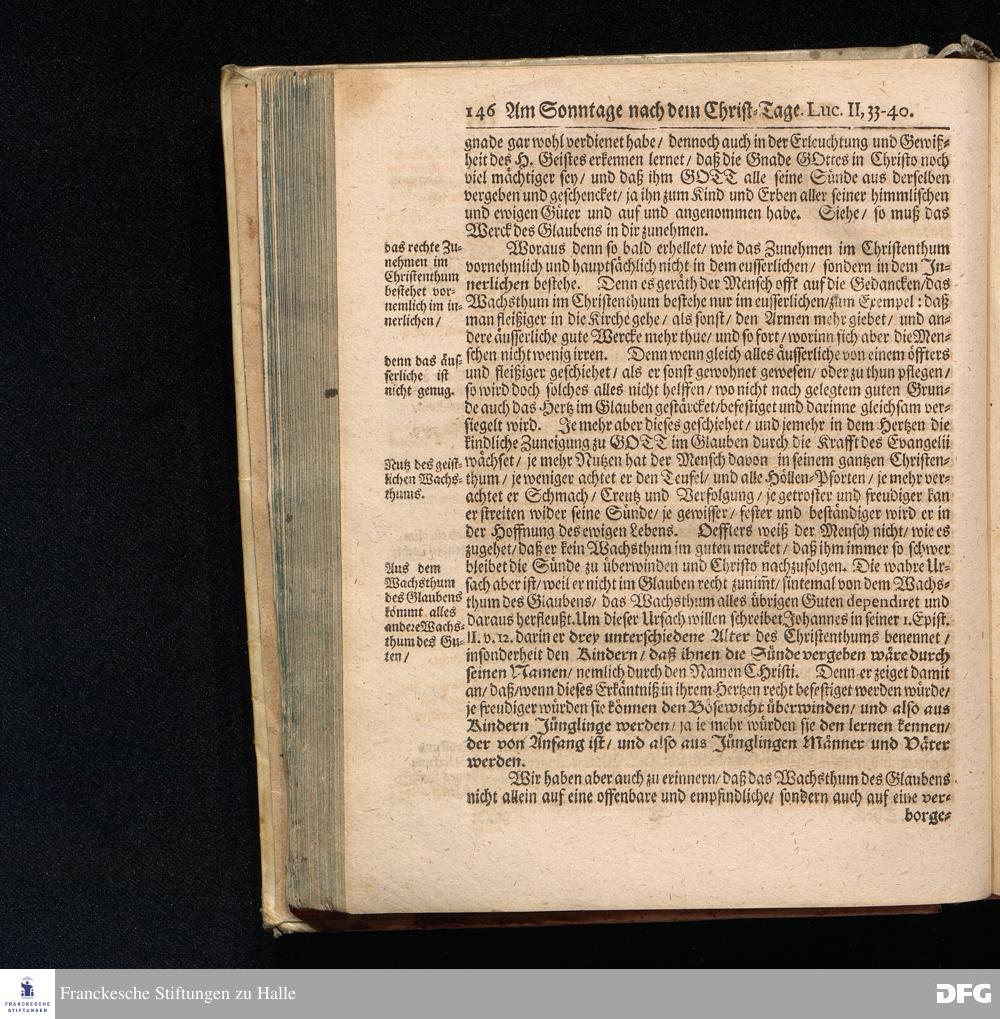 146 Am Sonntage nach dem Christ-Tage. Luc. II, 33-40.
gnade gar wohl verdienet habe / dennoch auch in der Erleuchtung und Gewiß-
heit des H. Geistes erkennen lernet / daß die Gnade GOttes in Christo noch
viel mächtiger sey / und daß ihm GOTT alle seine Sünde aus derselben
vergeben und geschencket / ja ihn zum Kind und Erben aller seiner himmlischen
und ewigen Güter und auf und angenommen habe. Siehe / so muß das
Werck des Glaubens in dir zunehmen.
das rechte Zu-
nehmen im
Christenthum
bestehet vor-
nemlich im in-
nerlichen /
Woraus denn so bald erhellet / wie das Zunehmen im Christenthum
vornehmlich und hauptsächlich nicht in dem eusserlichen / sondern in dem In-
nerlichen bestehe. Denn es geräth der Mensch offt auf die Gedancken / das
Wachsthum im Christenthum bestehe nur im eusserlichen / zum Exempel : daß
man fleißiger in die Kirche gehe / als sonst / den Armen mehr giebet / und an-
dere äusserliche gute Wercke mehr thue / und so fort / worinn sich aber die Men-
denn das äus-
serliche ist
nicht genug.
schen nicht wenig irren. Denn wenn gleich alles äusserliche von einem öffters
und fleißiger geschiehet / als er sonst gewohnet gewesen / oder zu thun pflegen /
so wird doch solches alles nicht helffen / wo nicht nach gelegtem guten Grun-
de auch das Hertz im Glauben gestärcket / befestiget und darinne gleichsam ver-
siegelt wird. Je mehr aber dieses geschiehet / und jemehr in dem Hertzen die
kindliche Zuneigung zu GOTT im Glauben durch die Krafft des Evangelii
Nutz des geist-
lichen Wachs-
thums.
wächset / je mehr Nutzen hat der Mensch davon in seinem gantzen Christen-
thum / je weniger achtet er den Teufel / und alle Höllen-Pforten / je mehr ver-
achtet er Schmach / Creutz und Verfolgung / je getroster und freudiger kan
er streiten wider seine Sünde / je gewisser / fester und beständiger wird er in
der Hoffnung des ewigen Lebens. Oeffters weiß der Mensch nicht / wie es
zugehet / daß er kein Wachsthum im guten mercket / daß ihm immer so schwer
Aus dem
Wachsthum
des Glaubens
kömmt alles
andere Wachs-
thum des Gu-
ten /
bleibet die Sünde zu überwinden und Christo nachzufolgen. Die wahre Ur-
sach aber ist / weil er nicht im Glauben recht zunim̃t / sintemal von dem Wachs-
thum des Glaubens / das Wachsthum alles übrigen Guten dependiret und
daraus herfleußt. Um dieser Ursach willen schreibet Johannes in seiner 1. Epist.
II. v. 12. darin er drey unterschiedene Alter des Christenthums benennet /
insonderheit den Kindern / daß ihnen die Sünde vergeben wäre durch
seinen Namen / nemlich durch den Namen CHristi. Denn er zeiget damit
an / daß / wenn dieses Erkäntniß in ihrem Hertzen recht befestiget werden würde /
je freudiger würden sie können den Bösewicht überwinden / und also aus
Kindern Jünglinge werden / ja je mehr würden sie den lernen kennen /
der von Anfang ist / und also aus Jünglingen Männer und Väter
werden.
Wir haben aber auch zu erinnern / daß das Wachsthum des Glaubens
nicht allein auf eine offenbare und empfindliche / sondern auch auf eine ver-
borge-
FRANCKESCHE
STIFTUNGEN
Franckesche Stiftungen zu Halle
DFG